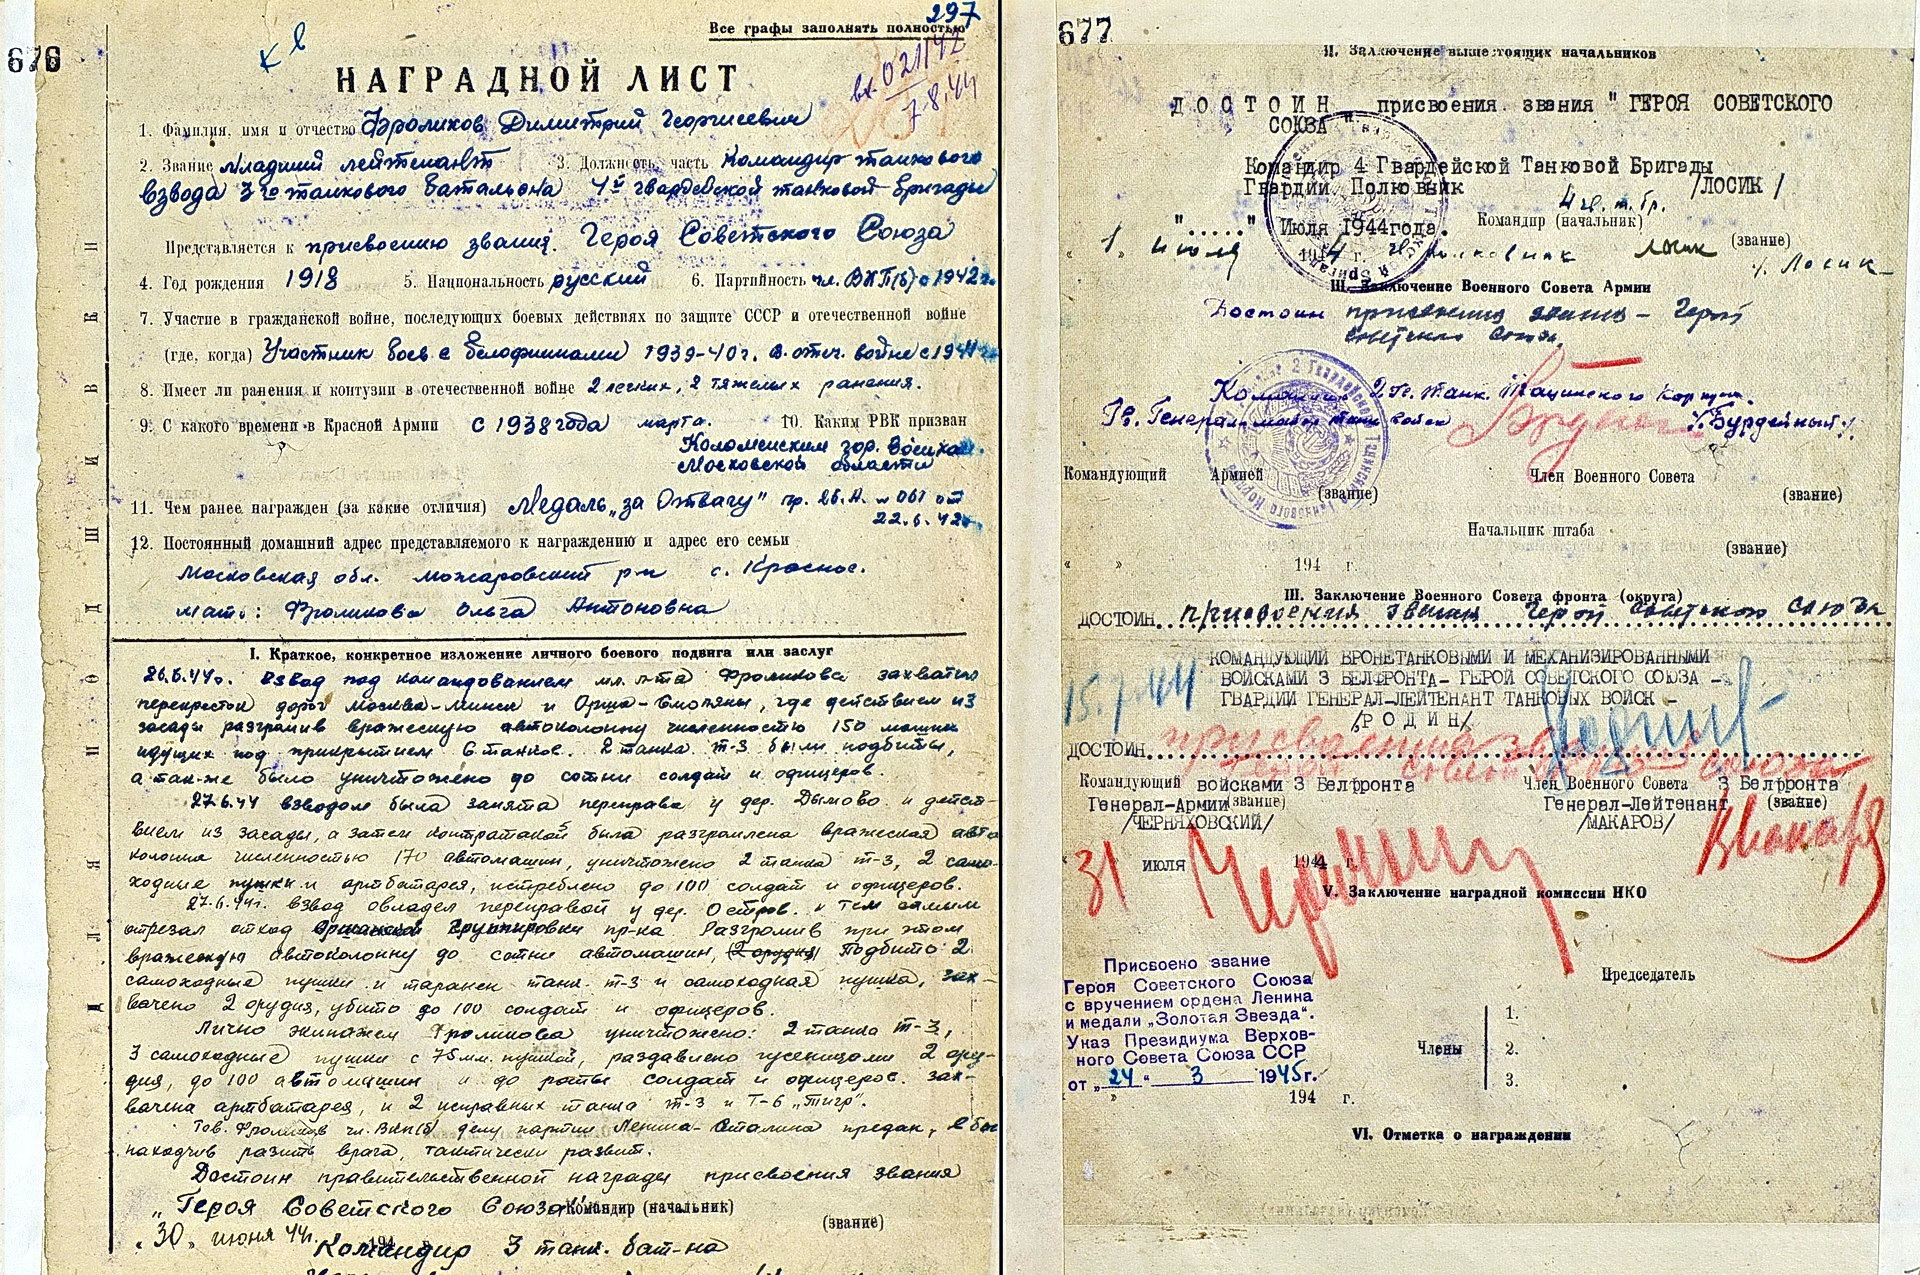 676
297
Все графы заполнять полностью
К в
вх. 021142
7-8.44
НАГРАДНОЙ ЛИСТ
1. Фамилия, имя и отчество Фроликов Димитрий Георгиевич
2. Звание Младший лейтенант 3. Должность, часть Командир танкового
взвода 3го танкового батальона 4й гвардейской танковой бригады
Представляется к присвоению звания. Героя Советского Союза
4. Год рождения 1918 5. Национальность русский 6. Партийность чл. ВКП(б) с 1942 г.
7. Участие в гражданской войне, последующих боевых действиях по защите СССР и отечественной войне
(где, когда) Участник боев с белофинами 1939-40г. в отеч. войне с 1941 г.
8. Имеет ли ранения и контузии в отечественной войне 2 легких, 2 тяжелых ранения.
9. С какого времени в Красной Армии с 1938 года марта. 10. Каким РВК призван
Коломенским гор. Военком.
Московской области
11. Чем ранее награжден (за какие отличия) Медаль „за Отвагу" пр. 26.А. № 061 от
22.6.42г.
12. Постоянный домашний адрес представляемого к награждению и адрес его семьи
Московская обл. Можаровский р-н с. Красное.
мать: Фроликова Ольга Антоновна
ДЛЯ ПОДШИВКИ
I. Краткое, конкретное изложение личного боевого подвига или заслуг
26.6.44г. взвод под командованием мл. л-та Фроликова захватил
перекресток дорог Москва-Минск и Орша-Смоляны, где действием из
засады разгромив вражескую автоколонну численностью 150 машин
идущих под прикрытием 6 танков. 2 танка Т-3 были подбиты,
а так-же было уничтожено до сотни солдат и офицеров.
27.6.44 взводом была занята переправа у дер. Дымово и дейст-
вием из засады, а затем контратакой была разгромлена вражеская авто
колонна численностью 170 автомашин, уничтожено 2 танка Т-3, 2 само-
ходные пушки и артбатарея, истреблено до 100 солдат и офицеров.
27.6.44г. взвод овладел переправой у дер. Остров. и тем самым
отрезал отход Оршанской группировки пр-ка Разгромив при этом
вражескую автоколонну до сотни автомашин, (2 орудия) Подбито 2
самоходные пушки и таранен танк Т-3 и самоходная пушка, зах-
вачено 2 орудия, убито до 100 солдат и офицеров.
Лично экипажем Фроликова уничтожено: 2 танка Т-3,
3 самоходные пушки с 75мм. пушкой, раздавлено гусеницами 2 ору-
дия, до 100 автомашин и до роты солдат и офицеров. зах-
вачена артбатарея, и 2 исправных танка Т-3 и Т-6 „Тигр".
Тов. Фроликов чл. ВКП(б) делу партии Ленина-Сталина предан, в бою
находчив разить врага, тактически развит.
Достоин правительственной награды присвоения звания
„Героя Советского Союза" Командир (начальник)
(звание)
„30„ июня 44г. 194
Командир 3 танк. бат-на
677
II. Заключение вышестоящих начальников
ДОСТОИН присвоения звания "ГЕРОЯ СОВЕТСКОГО
СОЮЗА".
Командир 4 Гвардейской Танковой Бригады
Гвардии Полковник /ЛОСИК/
4 гв. т. бр.
"....." Июля 1944года. Командир (начальник)
1. июля 1944 г. гв. полковник Лосик (звание)
/. Лосик
III. Заключение Военного Совета Армии
Достоин присвоения звания – Герой
Советского Союза.
Командир 2 Гв. танк. Тацинского Корпуса
Гв. Генерал-майор танк. войск /.Бурдейный/.
Командующий Армией Член Военного Совета
(звание) (звание)
Начальник штаба
(звание)
« » 194 г.
III. Заключение Военного Совета фронта (округа)
ДОСТОИН присвоения звания Герой Советского Союза
КОМАНДУЮЩИЙ БРОНЕТАНКОВЫМИ И МЕХАНИЗИРОВАННЫМИ
ВОЙСКАМИ 3 БЕЛФРОНТА- ГЕРОЙ СОВЕТСКОГО СОЮЗА -
ГВАРДИИ ГЕНЕРАЛ-ЛЕЙТЕНАНТ ТАНКОВЫХ ВОЙСК -
/РОДИН/
15.7.44
ДОСТОИН присвоения звания
Герой Советского Союза
Командующий войсками 3 Белфронта Член Военного Совета 3 Белфронта
Генерал-Армии (звание) Генерал-Лейтенант (звание)
/ЧЕРНЯХОВСКИЙ/ /МАКАРОВ/
31 июля 1944 г.
V. Заключение наградной комиссии НКО
Председатель
Присвоено звание
Героя Советского Союза
с вручением ордена Ленина
и медали „Золотая Звезда".
Указ Президиума Верхов-
ного Совета Союза ССР
от „24" 3 1945г.
Члены
1.
2.
3.
» 194 г.
VI. Отметка о награждении